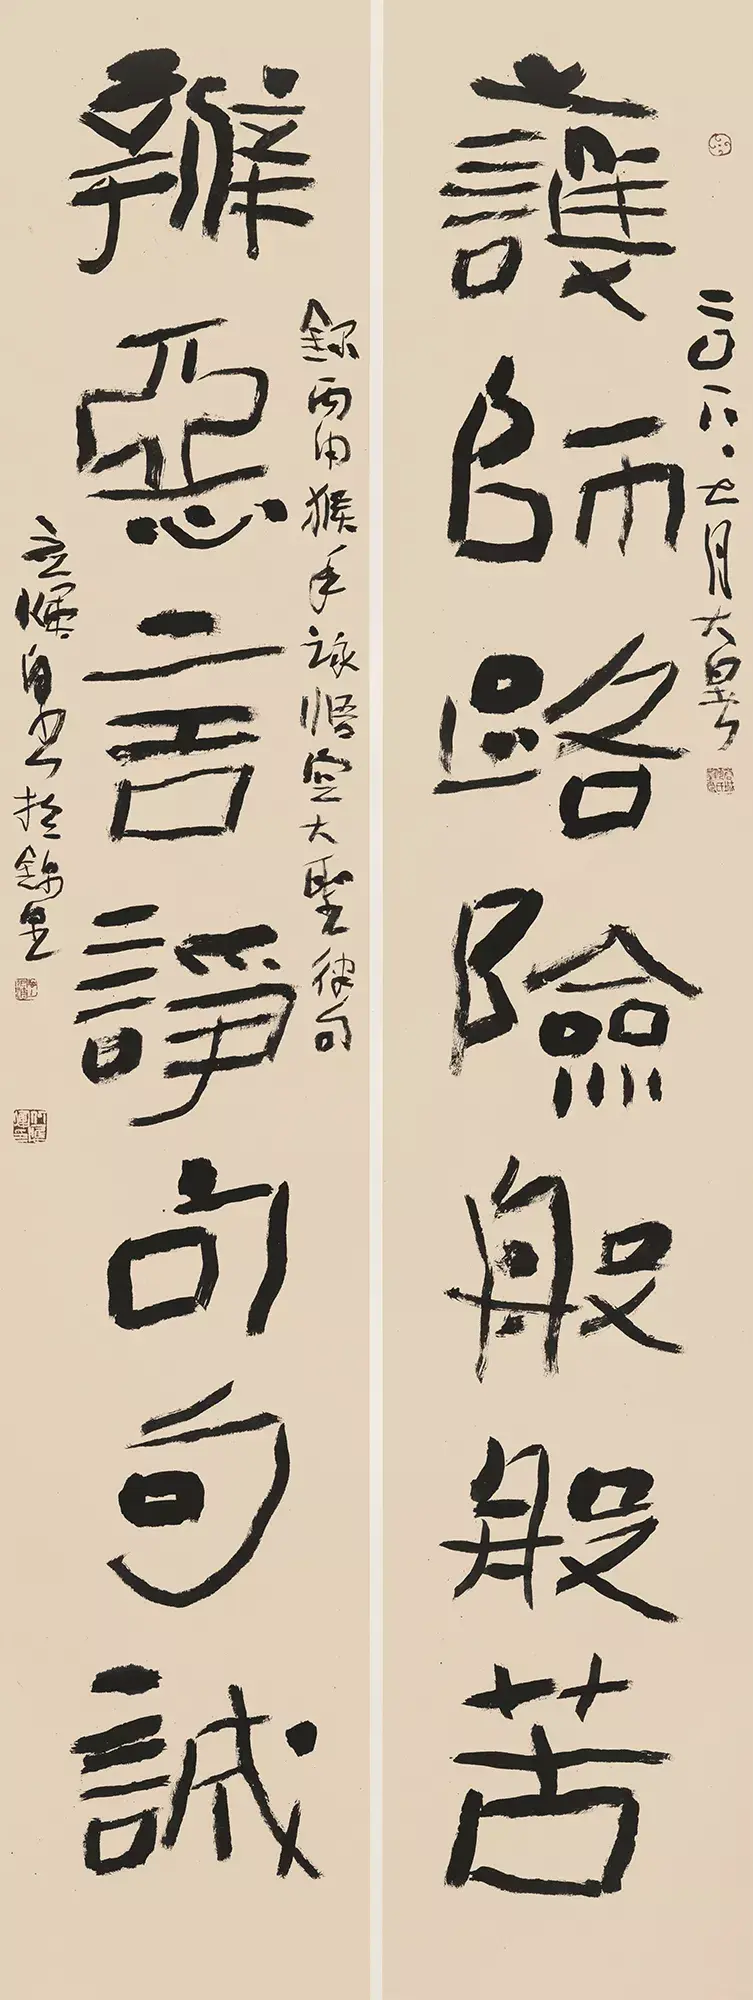 護師路險般般苦
二〇一八·七月大暑
辨惡言諍句句誠
錄丙申猴年詠悟空大聖律句
立陽自書於錦里